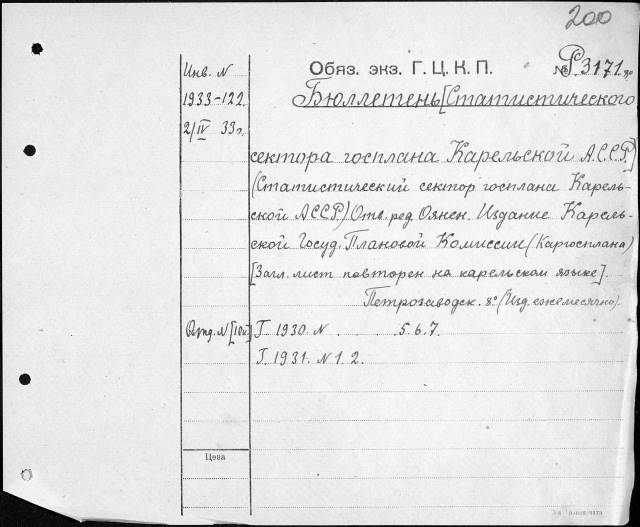 200
Инв. N
Обяз. экз. Г. Ц. К. П.
№ Р 3171
1933-122
Бюллетень [Статистического
2/IV 33г.
сектора госплана Карельской А.С.С.Р.]
(Статистический сектор госплана Карель-
ской АССР.) Отв. ред. Оянен. Издание Карель-
ской Госуд. Плановой Комиссии (Каргосплана)
[Загл. лист повторен на карельском языке].
Петрозаводск. 8° (Изд. ежемесячно).
N [10к.] Г. 1930. N . . 5. 6. 7.
Г. 1931. N 1. 2.
Цена